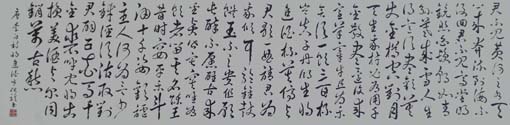 君不見黃河之水天
上來奔流到海不
復回君不見高堂
明鏡悲白髮朝如青
絲暮成雪人生得意
須盡歡莫使金樽空對月
天生我材必有用千
金散盡還復來烹羊
宰牛且為樂會
須一飲三百杯
岑夫子丹丘生將
進酒杯莫停與
君歌一曲請君為
我傾耳聽鐘鼓
饌玉不足貴但願
長醉不願醒古來
聖賢皆寂寞唯有
飲者留其名陳王
昔時宴平樂斗
酒十千恣歡謔
主人何為言少
錢徑須沽取對
君酌五花馬千
金裘呼兒將出
換美酒與爾同
銷萬古愁